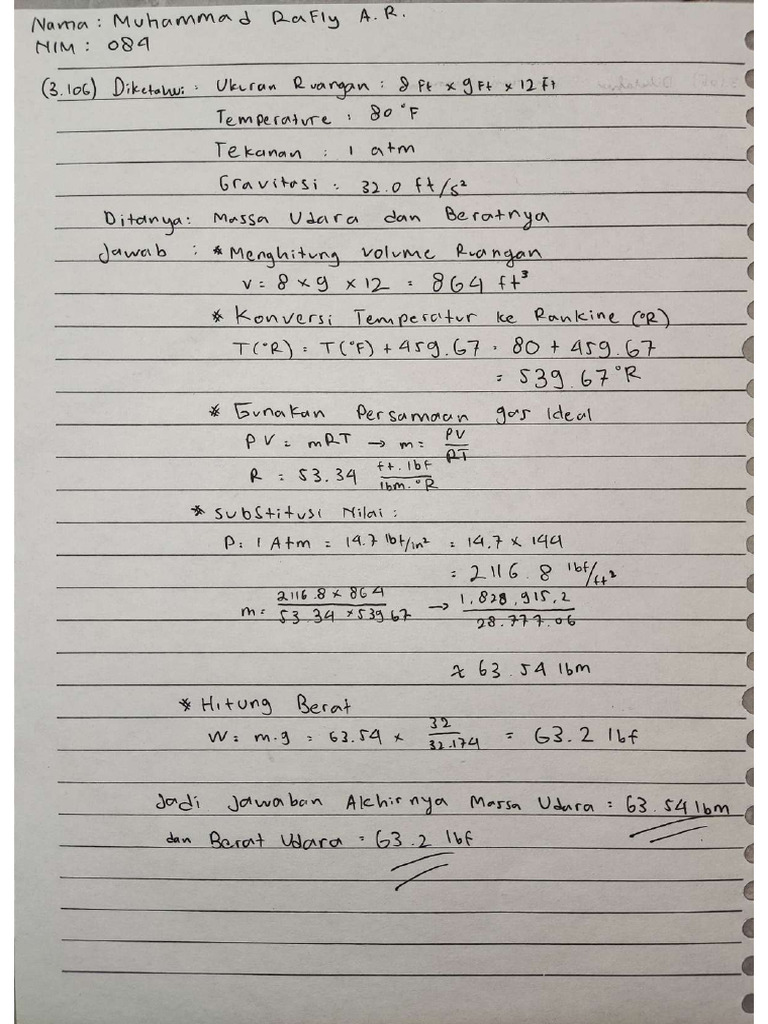 Nama : Muhammad Rafly A.R.
NIM : 084
(3.106) Diketahui : Ukuran Ruangan : 8 Ft x 9 Ft x 12 Ft
Temperature : 80 °F
Tekanan : 1 atm
Gravitasi : 32.0 ft/s²
Ditanya : Massa Udara dan Beratnya
Jawab : * Menghitung Volume Ruangan
V = 8 x 9 x 12 = 864 ft³
* Konversi Temperatur ke Rankine (°R)
T(°R) = T(°F) + 459.67 = 80 + 459.67
= 539.67 °R
* Gunakan Persamaan gas Ideal
PV = mRT → m = PV/RT
R = 53.34 ft.lbf/lbm.°R
* Substitusi Nilai :
P = 1 Atm = 14.7 lbf/in² = 14.7 x 144
= 2116.8 lbf/ft²
m = 2116.8 x 864/53.34 x 539.67 → 1.828.915,2/28.777.06
≈ 63.54 lbm
* Hitung Berat
W = m.g = 63.54 x 32/32.174 = 63.2 lbf
Jadi Jawaban Akhirnya Massa Udara = 63.54 lbm
dan Berat Udara = 63.2 lbf